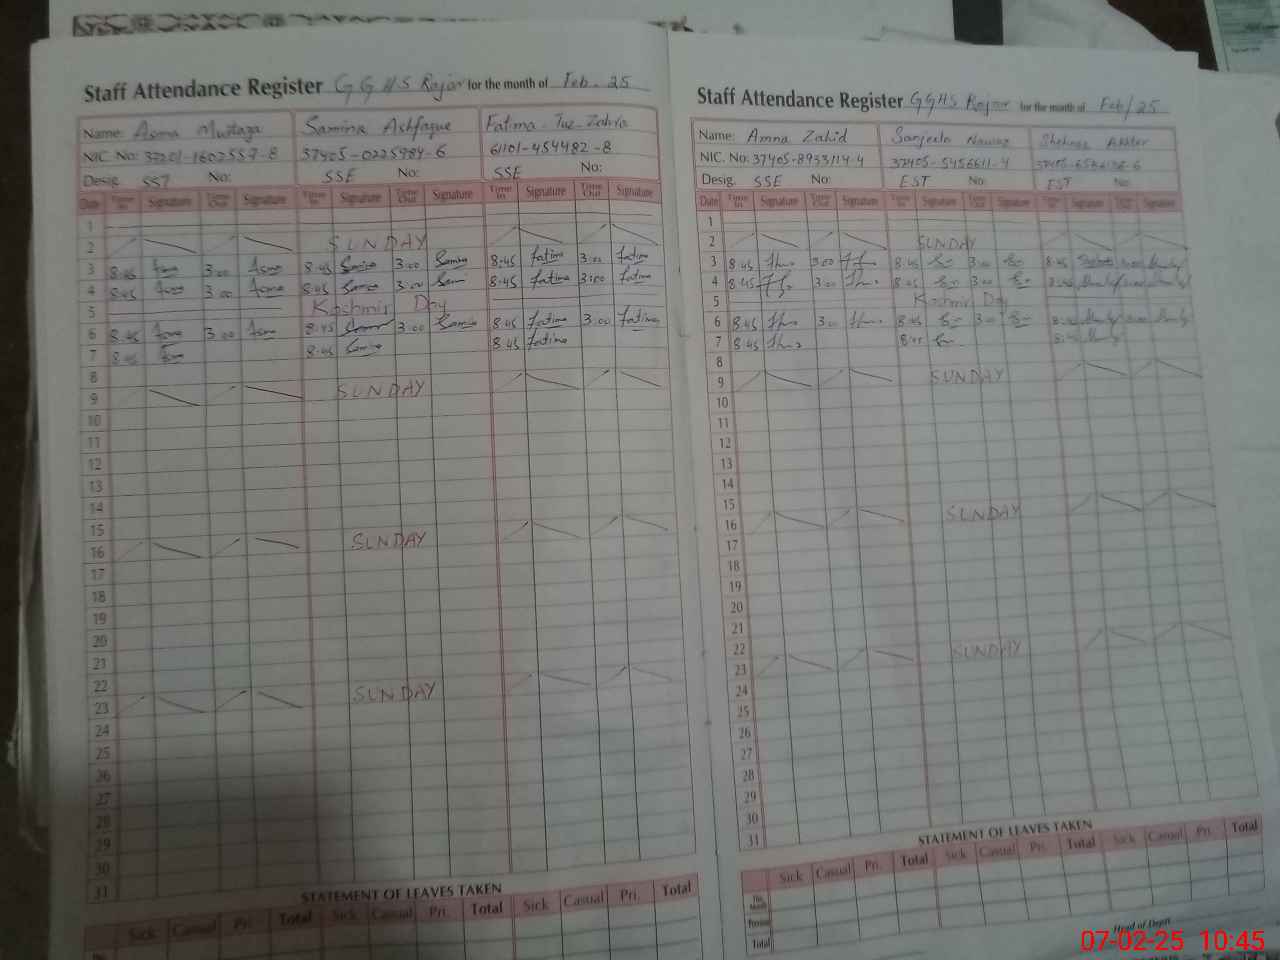 Staff Attendance Register GGHS Rajar for the month of Feb. 25
Name: Asma Mustaza Samina Ashfaque Fatima Tuz Zahra
NIC. No: 37201-1602557-8 37405-0225984-6 61101-454482-8
Desig. SST No: SSE No: SSE No:
Date Time In Signature Time Out Signature Time In Signature Time Out Signature Time In Signature Time Out Signature
1
2 SUNDAY
3 8:45 Asma 3:00 Asma 8:45 Samina 3:00 Samina 8:45 fatima 3:00 fatima
4 8:45 Asma 3:00 Asma 8:45 Samina 3:00 8:45 fatima 3:00 fatima
5 Kashmir Day
6 8:45 Asma 3:00 Asma 8:45 3:00 Samina 8:45 fatima 3:00 fatima
7 8:45 8:45 Samina 8:45 fatima
8
9 SUNDAY
10
11
12
13
14
15
16 SUNDAY
17
18
19
20
21
22
23 SUNDAY
24
25
26
27
28
29
30
31
STATEMENT OF LEAVES TAKEN
Sick Casual Pri. Total Sick Casual Pri. Total Sick Casual Pri. Total
Staff Attendance Register GGHS Rajar for the month of Feb/25
Name: Amna Zahid Sanjeela Nawaz Shehnaz Akhter
NIC. No: 37405-8933114-4 37405-5456611-4
Desig. SSE No: EST No: EST No:
Date Time In Signature Time Out Signature Time In Signature Time Out Signature Time In Signature Time Out Signature
1
2 SUNDAY
3 8:45 3:00 8:45 3:00 8:45 3:00
4 8:45 3:00 8:45 3:00 8:45 3:00
5 Kashmir Day
6 8:45 3:00 8:45 3:00 8:45 3:00
7 8:45 8:45 8:45
8
9 SUNDAY
10
11
12
13
14
15
16 SUNDAY
17
18
19
20
21
22
23 SUNDAY
24
25
26
27
28
29
30
31
STATEMENT OF LEAVES TAKEN
Sick Casual Pri. Total Sick Casual Pri. Total Sick Casual Pri. Total
This Month
Previous
Total
Head of Deptt.
07-02-25 10:45